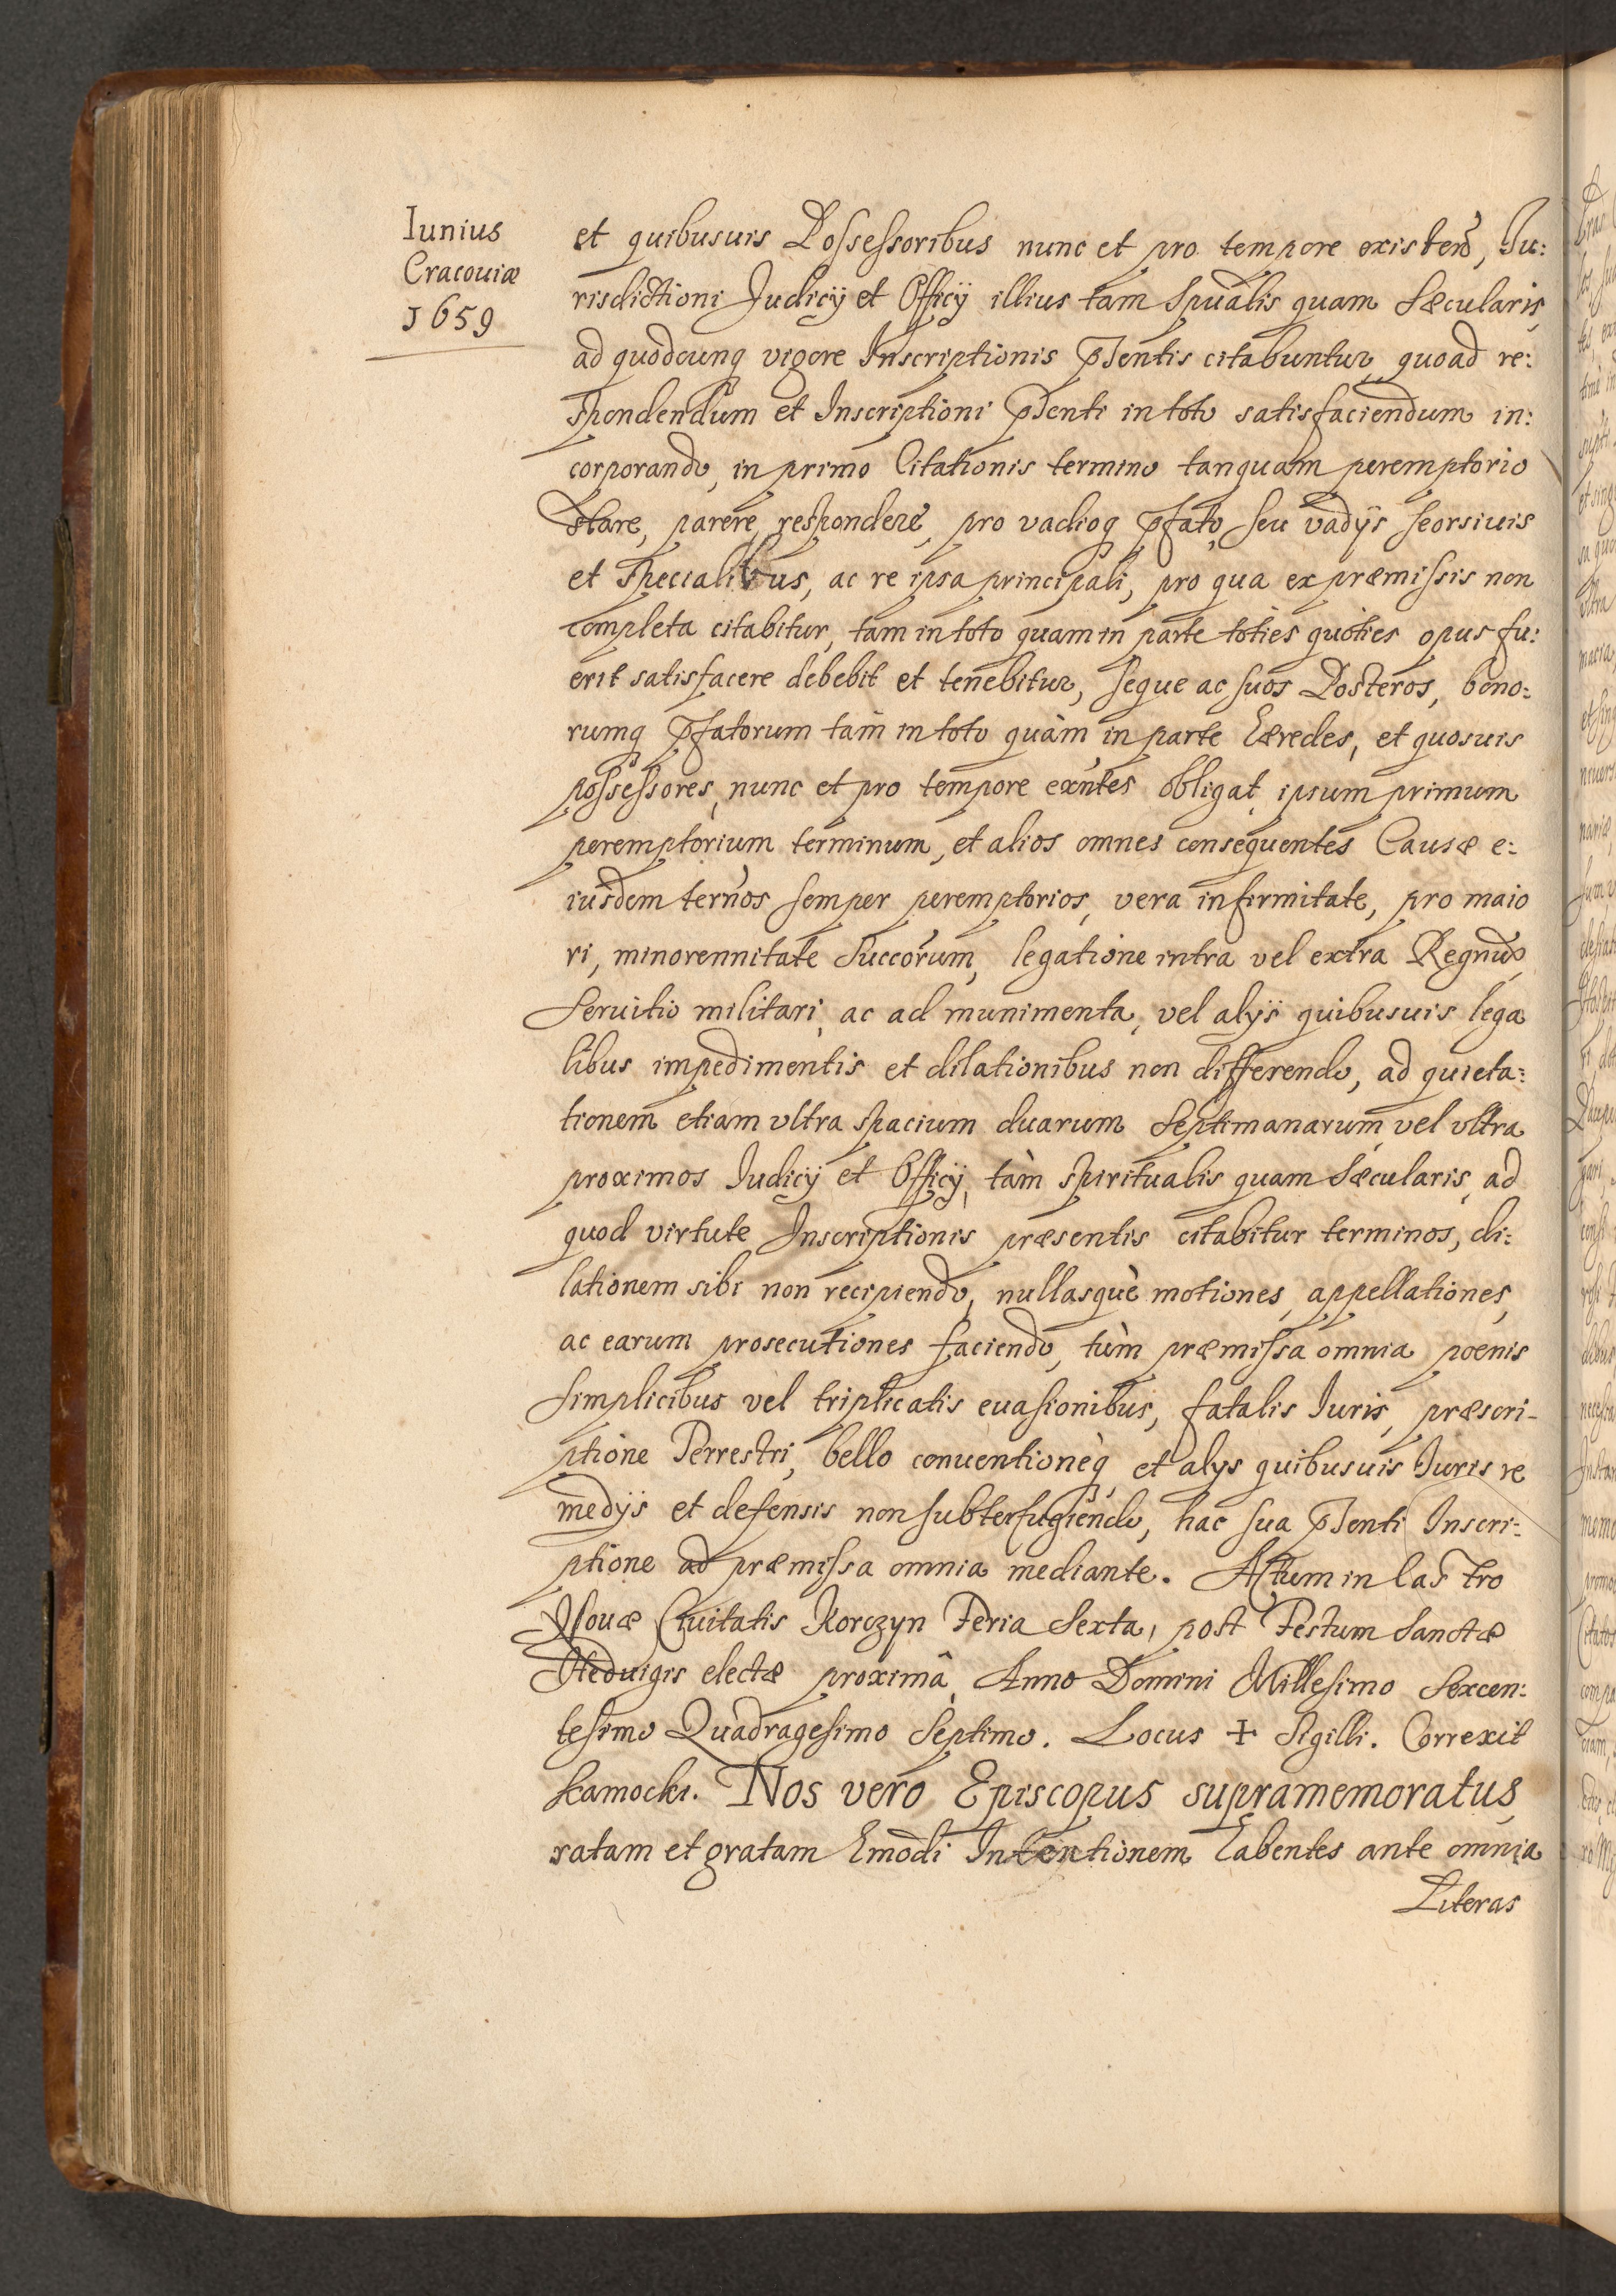 Iunius
Cracouiæ
1659
et quibusuis Possessoribus nunc et pro tempore existen̄, Iu:
risdictioni Judicÿ et Officÿ illius tam Spũalis quam Sæcularis,
ad quodcunq vigore Inscriptionis p̃senti citabuntur, quoad re:
spondendum et Inscriptioni p̃senti in toto satisfaciendum in:
corporando, in primo Citationis termino tanquam peremptorio
stare, parere, respondere, pro vadioq p̃fato, seu vadÿs seorsiuis
et specialibus, ac re ipsa principali, pro qua ex præmissis non
completa citabitur, tam in toto quam in parte toties quoties opus fu:
erit satisfacere debebit et tenebitur, seque ac suos Posteros, bono:
rumq p̃fatorum tàm in toto quàm in parte hæredes, et quosuis
possessores, nunc et pro tempore exñtes obligat, ipsum primum
peremptorium terminum, et alios omnes consequentes Causæ e:
iusdem terños semper peremptorios, vera infirmitate, pro maio
ri, minorennitate Succorum, legatione intra vel extra Regnũ,
Seruitio militari, ac ad munimenta, vel alÿs quibusuis lega
libus impedimentis et dilationibus non differendo, ad quieta:
tionem etiam vltra spacium duarum Septimanarum, vel vltra
proximos Iudicÿ et Officÿ, tàm spiritualis quam Sæcularis, ad
quod virtute Inscriptionis præsentis citabitur terminos, di:
lationem sibi non recipiendo, nullasquè motiones, appellationes,
ac earum prosecutiones faciendo, tùm præmissa omnia pœnis
simplicibus vel triplicatis euasionibus, fatalis Iuris, præscri-
ptione Terrestri, bello conuentionèq et alys quibusuis Iuris re
medÿs et defensis non subterfugiendo, hac sua p̃senti Inscri:
ptione ad præmissa omnia mediante. Actum in Castro
Nouæ Ciuitatis Korczyn Feria Sexta, post Festum Sanctæ
Heduigis electæ proximâ, Anno Domini Millesimo Sexcen:
tesimo Quadragesimo Septimo. Locus + Sigilli. Correxit
Kamocki. Nos vero Episcopus supramemoratus,
ratam et gratam hmōdi Intentionem habentes ante omnia
Literas